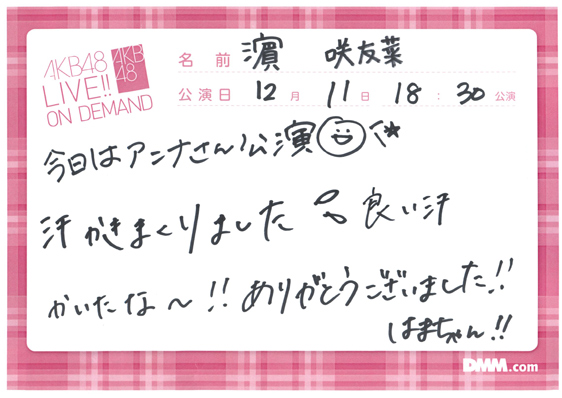 AKB48
LIVE!!
ON DEMAND
AKB
48
名前 濵 咲友菜
公演日 12月 11日 18:30公演
今日はアンナさん公演
汗かきまくりました 良い汗
かいたな〜!! ありがとうございました!!
はまちゃん!!
DMM.com